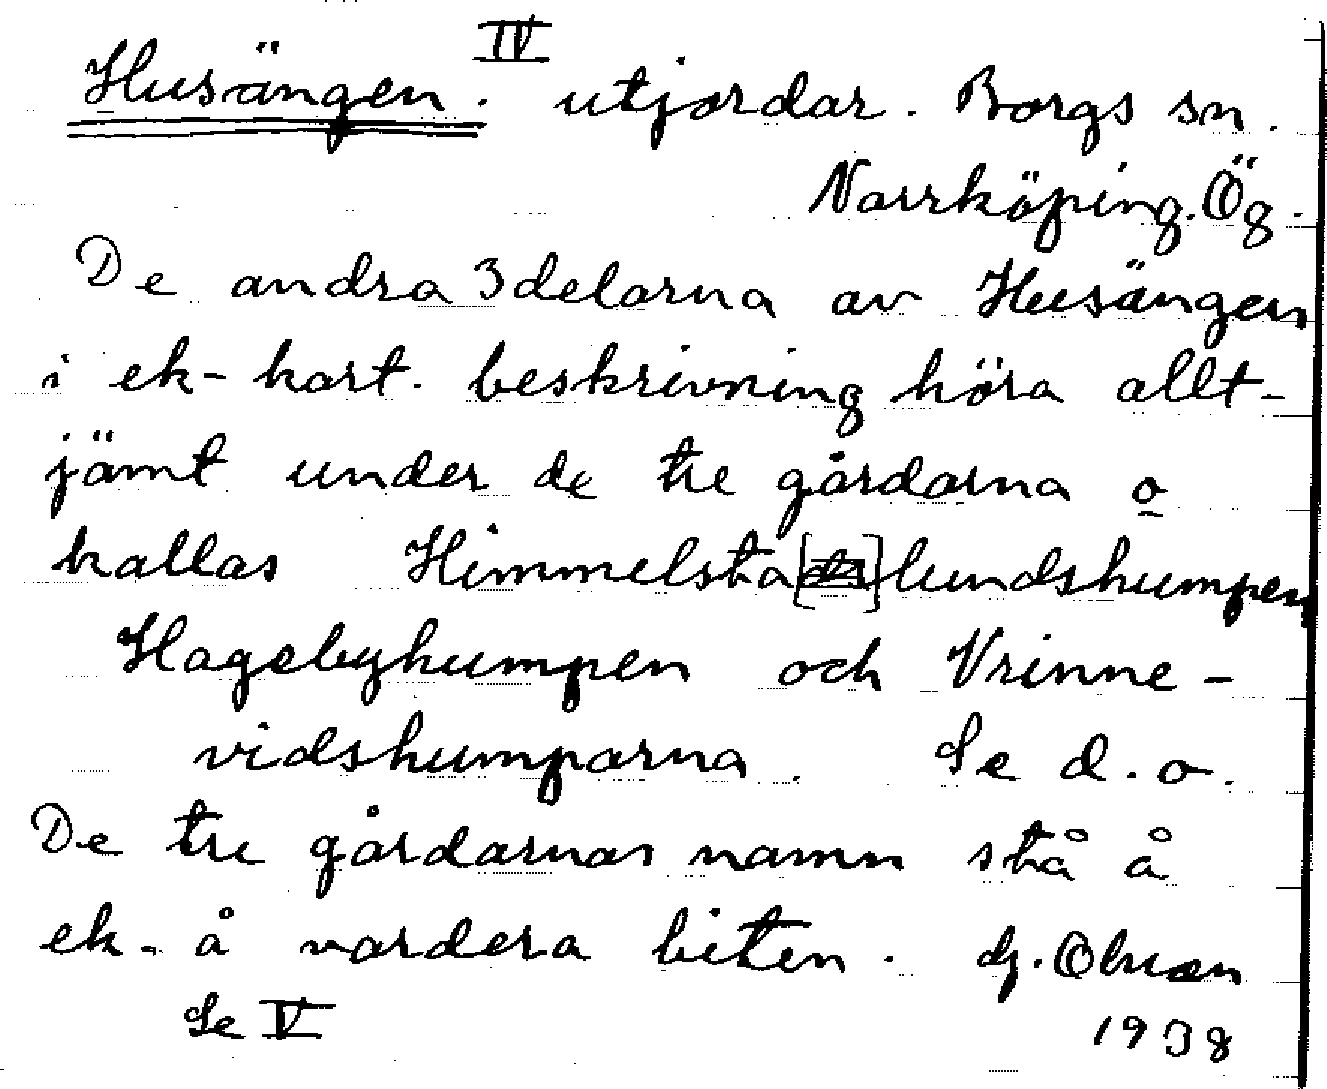 IV
Husängen. utjordar. Borgs sn.
Norrköping. Ög.
De andra 3 delarna av Husängen
i ek-kart. beskrivning höra allt-
jämt under de tre gårdarna o
kallas Himmelsta[]lundshumpen
Hagebyhumpen och Vrinne-
vidshumparna. Se d.o.
De tre gårdarnas namn stå å
ek. å vardera biten.
Se V 1938